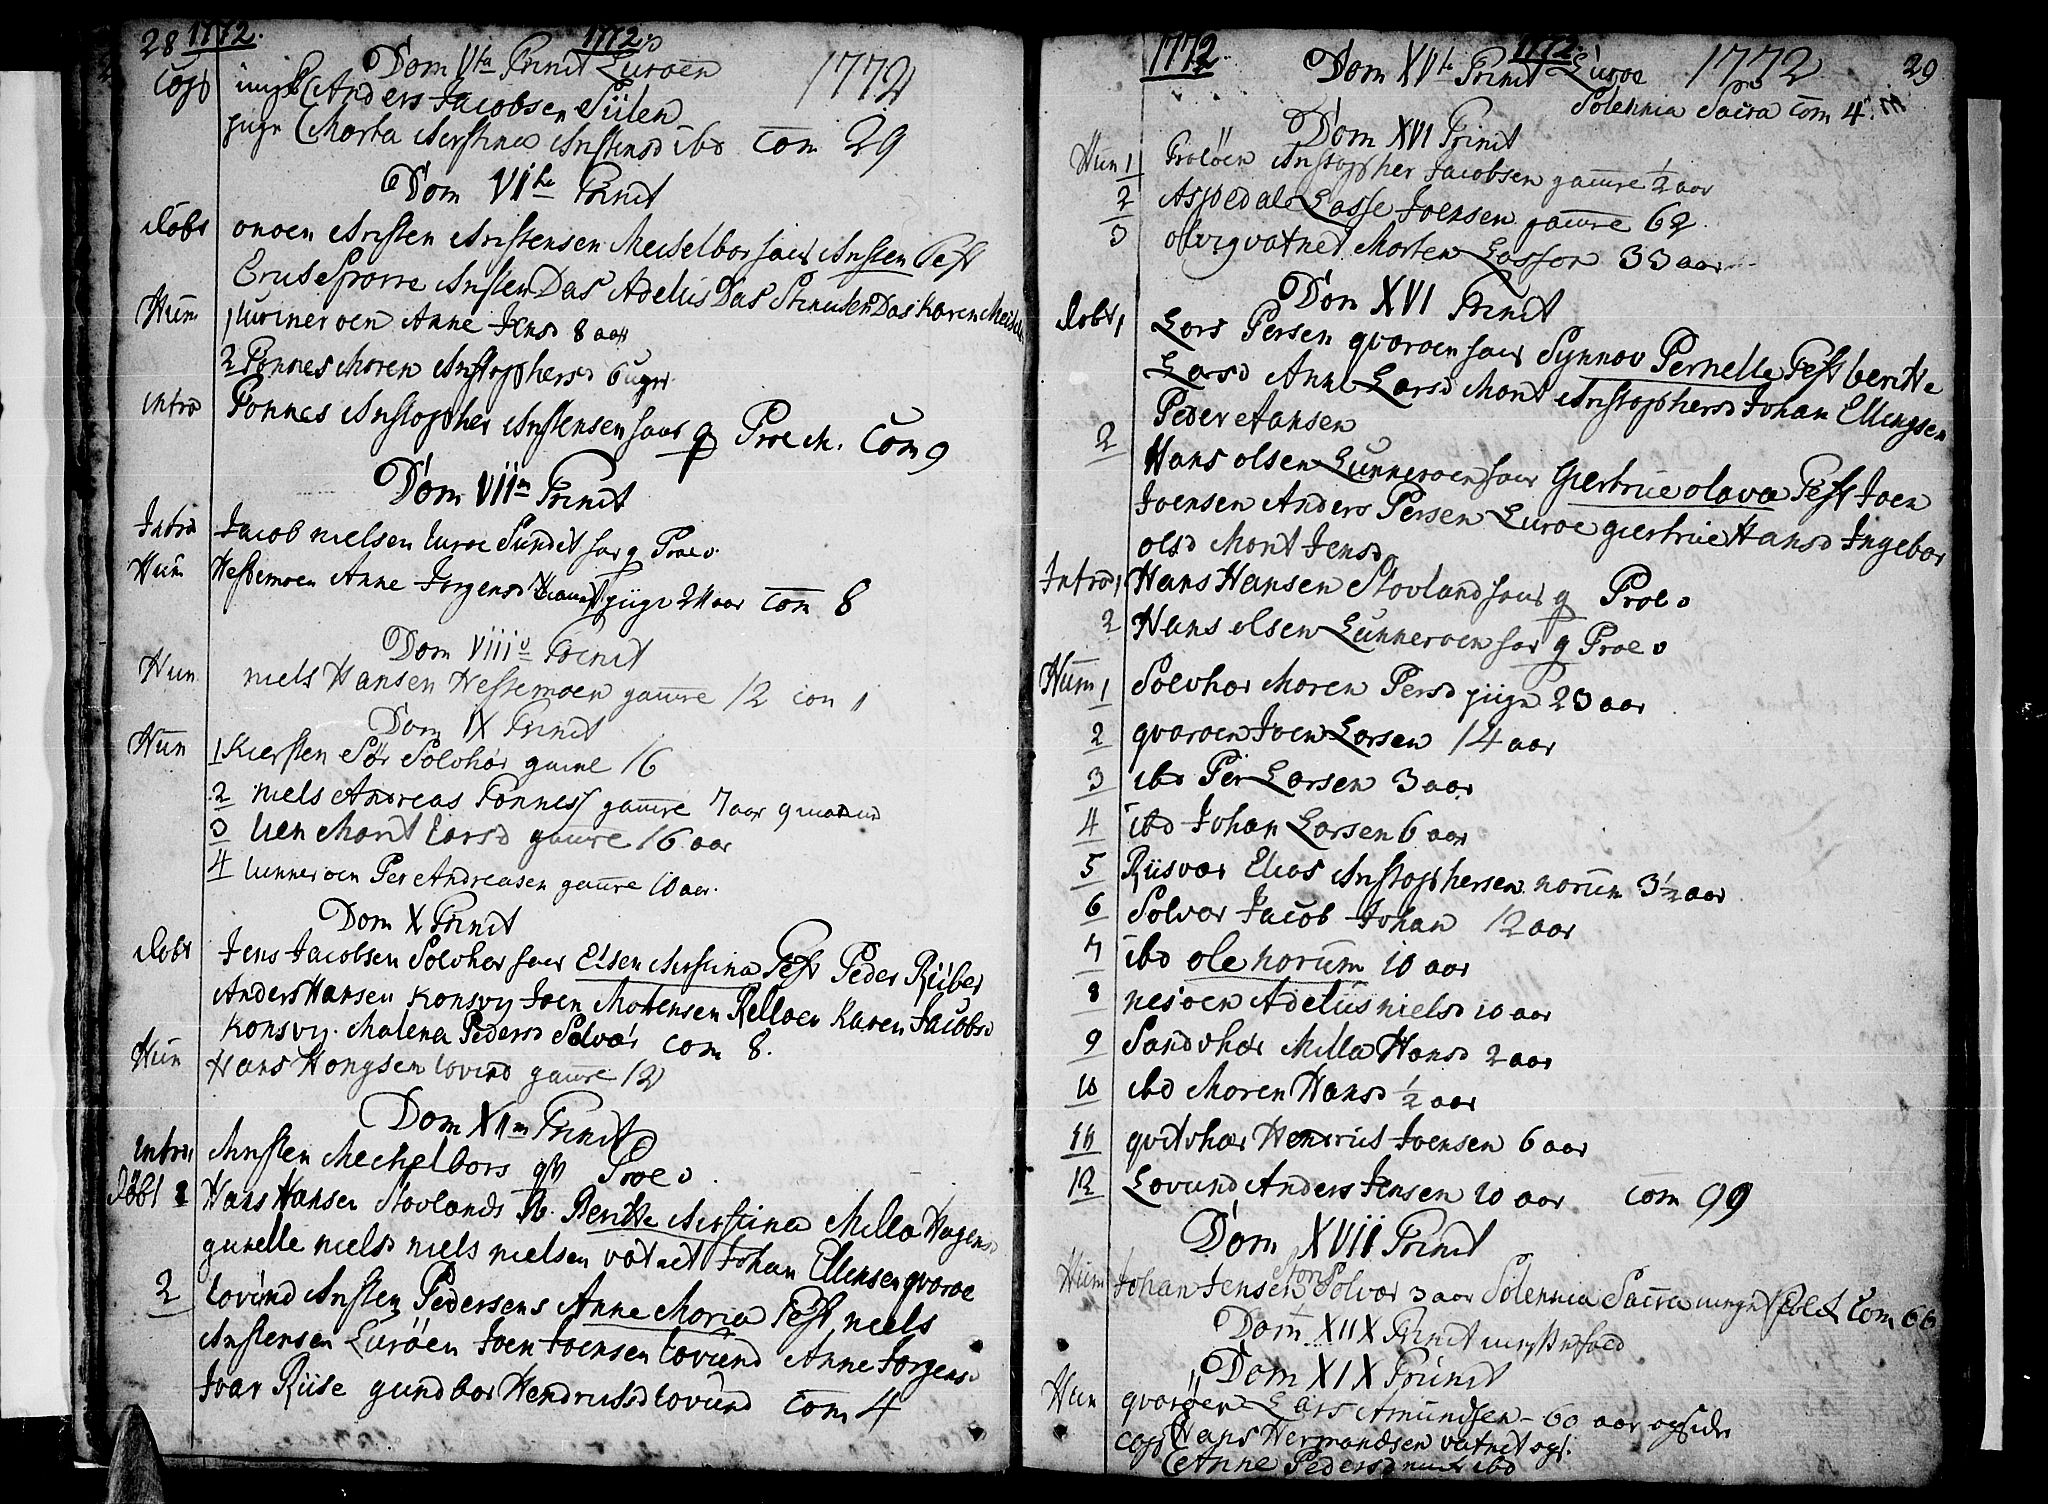 28 1772. 1772
Dom Vta Trinit Luroen 1772
Cop ungk Anders Jacobsen Siilen
pige Marta Kirstina Kristensd ibd Com 29
Dom VIta Trinit
Døbt onøen Kristen Kristensen Meichelbor hans Kristen Test
Sparre Kristen Das Adelus Das Karen
Hum 1 Lurineroen Anne Jensd 8 aar
2 Tonnes Maren Kristophersd 6 uger
intro Tonnes Kristopher Kristensen hans q Proe M. Com 9
Dom VIIm Trinit
Intro Jacob nielsen luroe Sundet hans q Proe o
Hum Hestemoen Anne Jorgensd pige 24 aar Com 8
Dom VIII Trinit
Hum niels Hansen Hestemoen gamre 12 com 1
Dom IX Trinit
Hum 1 Kiersten Sør Solvhør gamre 16
2 niels Andreas Tonness gamre 7 aar 9 maaned
3 lien Marit larsd gamre 16 aar
4 lunneroen Per Andreasen gamre 10 aar.
Dom X Trinit
Døbt Jens Jacobsen Solvhør hans Elsen Kirstina Test Peder Riiber
Anders Hansen Konsvy Joen Mortensen Relloen Karen Jacobsd
Konsvy. Malena Pedersd Solvær Com 8.
Hum Hans Hongsen lovund gamre 12
Dom XIIm Trinit
intro Kristen Mechelbors qv Proe o
Døbt 1 Hans Hansen Stovlands B. Beritte Kirstina Milla Hagensd
gunelle nielsd niels nielsen vatnet Johan Ellensen qvaroe
2 lovund Kristen Pedersens Anne Maria Test niels
Kristensen Luröen Joen Joensen lovund Anne Jorgensd
Ivar Riise gundbor Hendriksd lovund Com 4
1772 1772 29
Dom XVta Trinit Luroe 1772
Solennia Sacra Com 4
Dom XVI Trinit
Hum 1 Troløen Kristopher Jacobsen gamre 1/2 aar
2 Aspedal Lasse Joensen gamre 62
3 olvigvatnet Morten Lasson 33 aar
Dom XVI Trinit
Døbt 1 Lars Persen qvaroen hans Synnov Pernelle Test beritte
Larsd Anne Larsd Marit Kristophersd Johan Ellingsen
Peder Hansen
2 Hans olsen Lunneroen hans Giertrue olava Test Joen
Joensen Anders Persen Luroe giertrue Hansd Ingebor
olsd Marit Jensd
Intro 1 Hans Hansen Stovland hans q Proe o
2 Hans olsen Lunneroen hans q Proe o
Hum 1 Solvhør Maren Persd pige 23 aar
2 qvaroen Joen Larsen 14 aar
3 ibd Per Larsen 3 aar
4 ibd Johan Larsen 6 aar
5 Riisvær Elias Kristophersen norum 3 1/2 aar
6 Solvær Jacob Johan 12 aar
7 ibd ole norum 10 aar
8 nesøen Adelus nielsd 10 aar
9 Sandvhør Milla Hansd 2 aar
10 ibd Maren Hansd 1/2 aar
11 qvitvhær Hendrik Joensen 6 aar
12 Lovund Anders Jensen 10 aar Com 99
Dom XVII Trinit
Hum Johan Jensen Stor Solvær 3 aar Solennia Sacra Com 66
Dom XIIX Trinit
Dom XIX Trinit
Hum qvaröen Lars Amundsen 60 aar
Cop Hans Hermandsen vatnet og
Anne Pedersd ibd